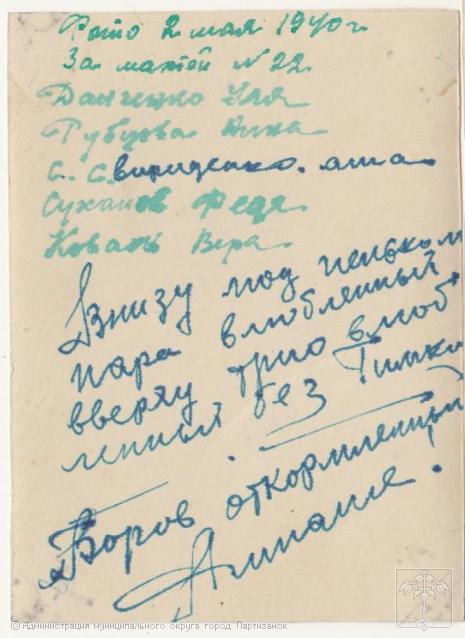 Фото 2 мая 1940 г
За шахтой N 22
Данченко Уля
Губцова Анна
С. С. Свириденко. аша
Суханов Федя
Коваль Вера
Внизу под пеньком
пара влюбленный
вверху трио влюб
ленный без Тимки
Боров откормленный
Алпаше!
© Администрация муниципального округа город Партизанск